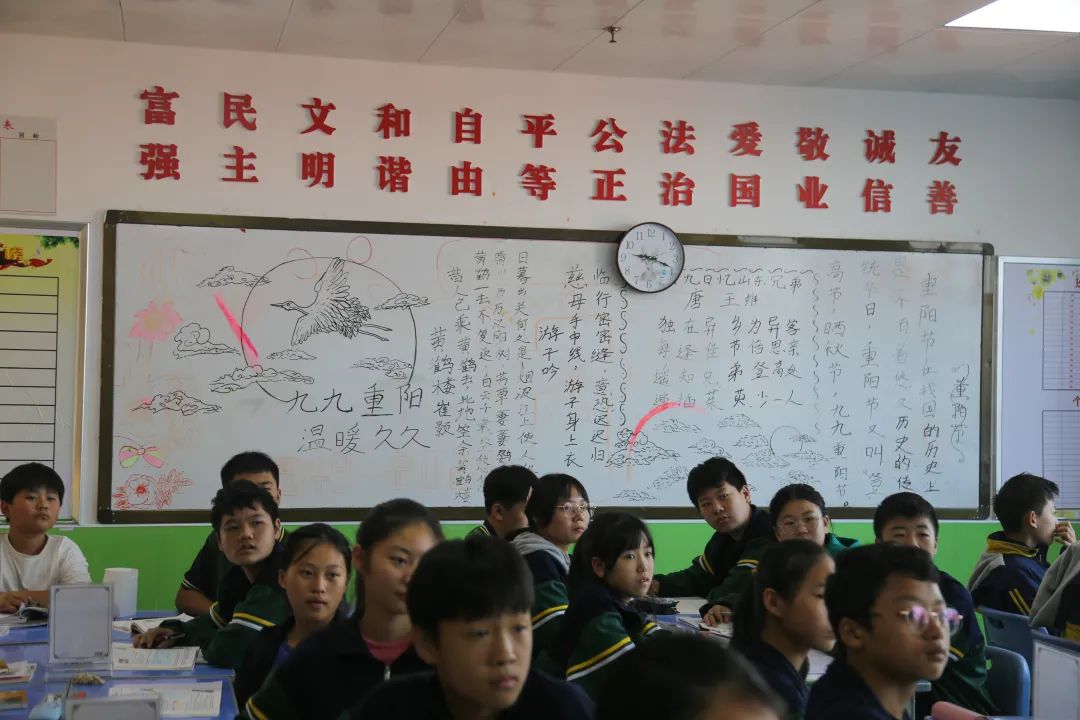 富 民 文 和 自 平 公 法 爱 敬 诚 友
强 主 明 谐 由 等 正 治 国 业 信 善
九九重阳
温暖久久
黄鹤楼 崔颢
昔人已乘黄鹤去,此地空余黄鹤楼
黄鹤一去不复返,白云千载空悠
晴川历历汉阳树,芳草萋萋鹦
日暮乡关何处是,烟波江上使人
游子吟
慈母手中线,游子身上衣
临行密密缝,意恐迟迟归
九日忆山东兄弟
唐 王维
独在异乡为异客
每逢佳节倍思亲
遥知兄弟登高
少一人
《重阳节》
重阳节在我国的历史上
是一个有悠久历史的传
统节日,重阳节又叫“登
高节,晒秋节,九九重阳节。